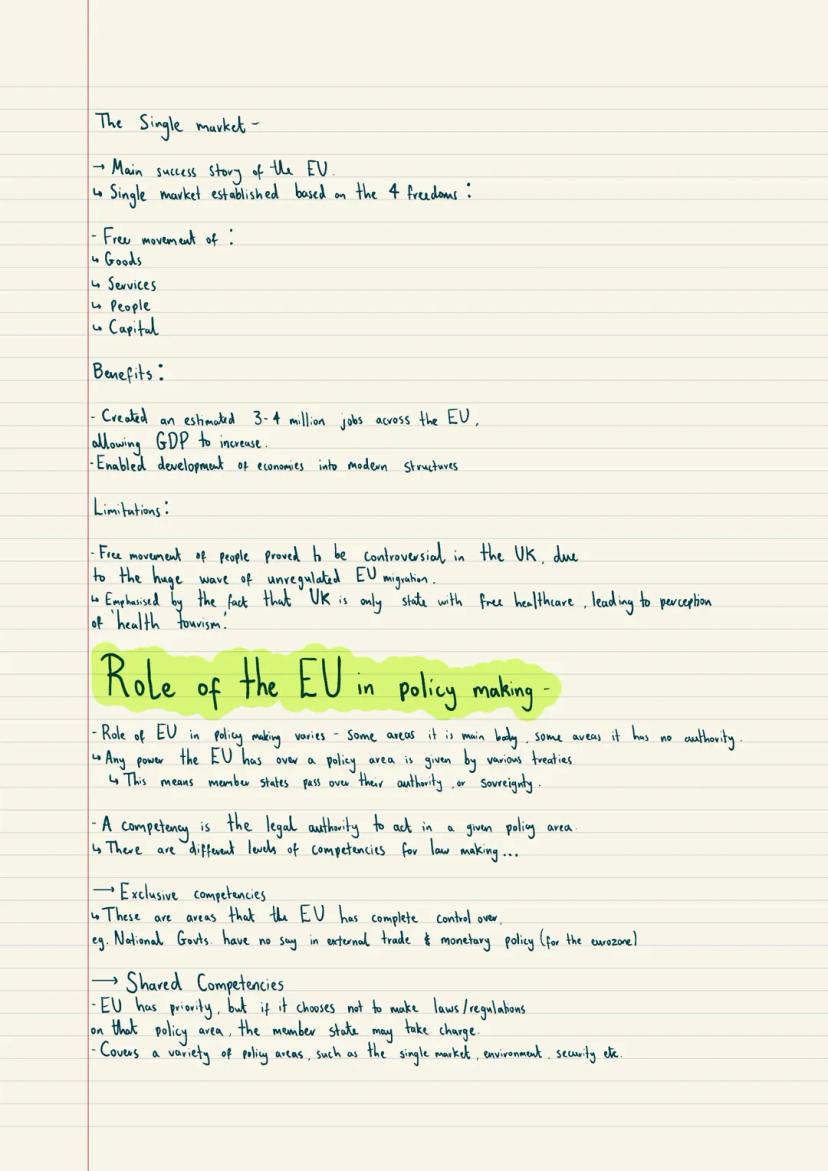 The Single market -
→ Main success story of the EU.
↳ Single market established based on the 4 freedoms :
- Free movement of :
↳ Goods
↳ Services
↳ People
↳ Capital
Benefits :
- Created an estimated 3-4 million jobs across the EU,
allowing GDP to increase.
- Enabled development of economies into modern structures
Limitations :
- Free movement of people proved to be controversial in the UK, due
to the huge wave of unregulated EU migration.
↳ Emphasised by the fact that UK is only state with free healthcare, leading to perception
of 'health tourism.'
Role of the EU in policy making -
- Role of EU in policy making varies - Some areas it is main body, some areas it has no authority.
↳ Any power the EU has over a policy area is given by various treaties
↳ This means member states pass over their authority, or sovreignty.
- A competency is the legal authority to act in a given policy area.
↳ There are different levels of competencies for law making...
→ Exclusive competencies
↳ These are areas that the EU has complete control over,
eg. National Govts. have no say in external trade & monetary policy (for the eurozone)
→ Shared Competencies
- EU has priority, but if it chooses not to make laws/regulations
on that policy area, the member state may take charge.
- Covers a variety of policy areas, such as the single market, environment, security etc.